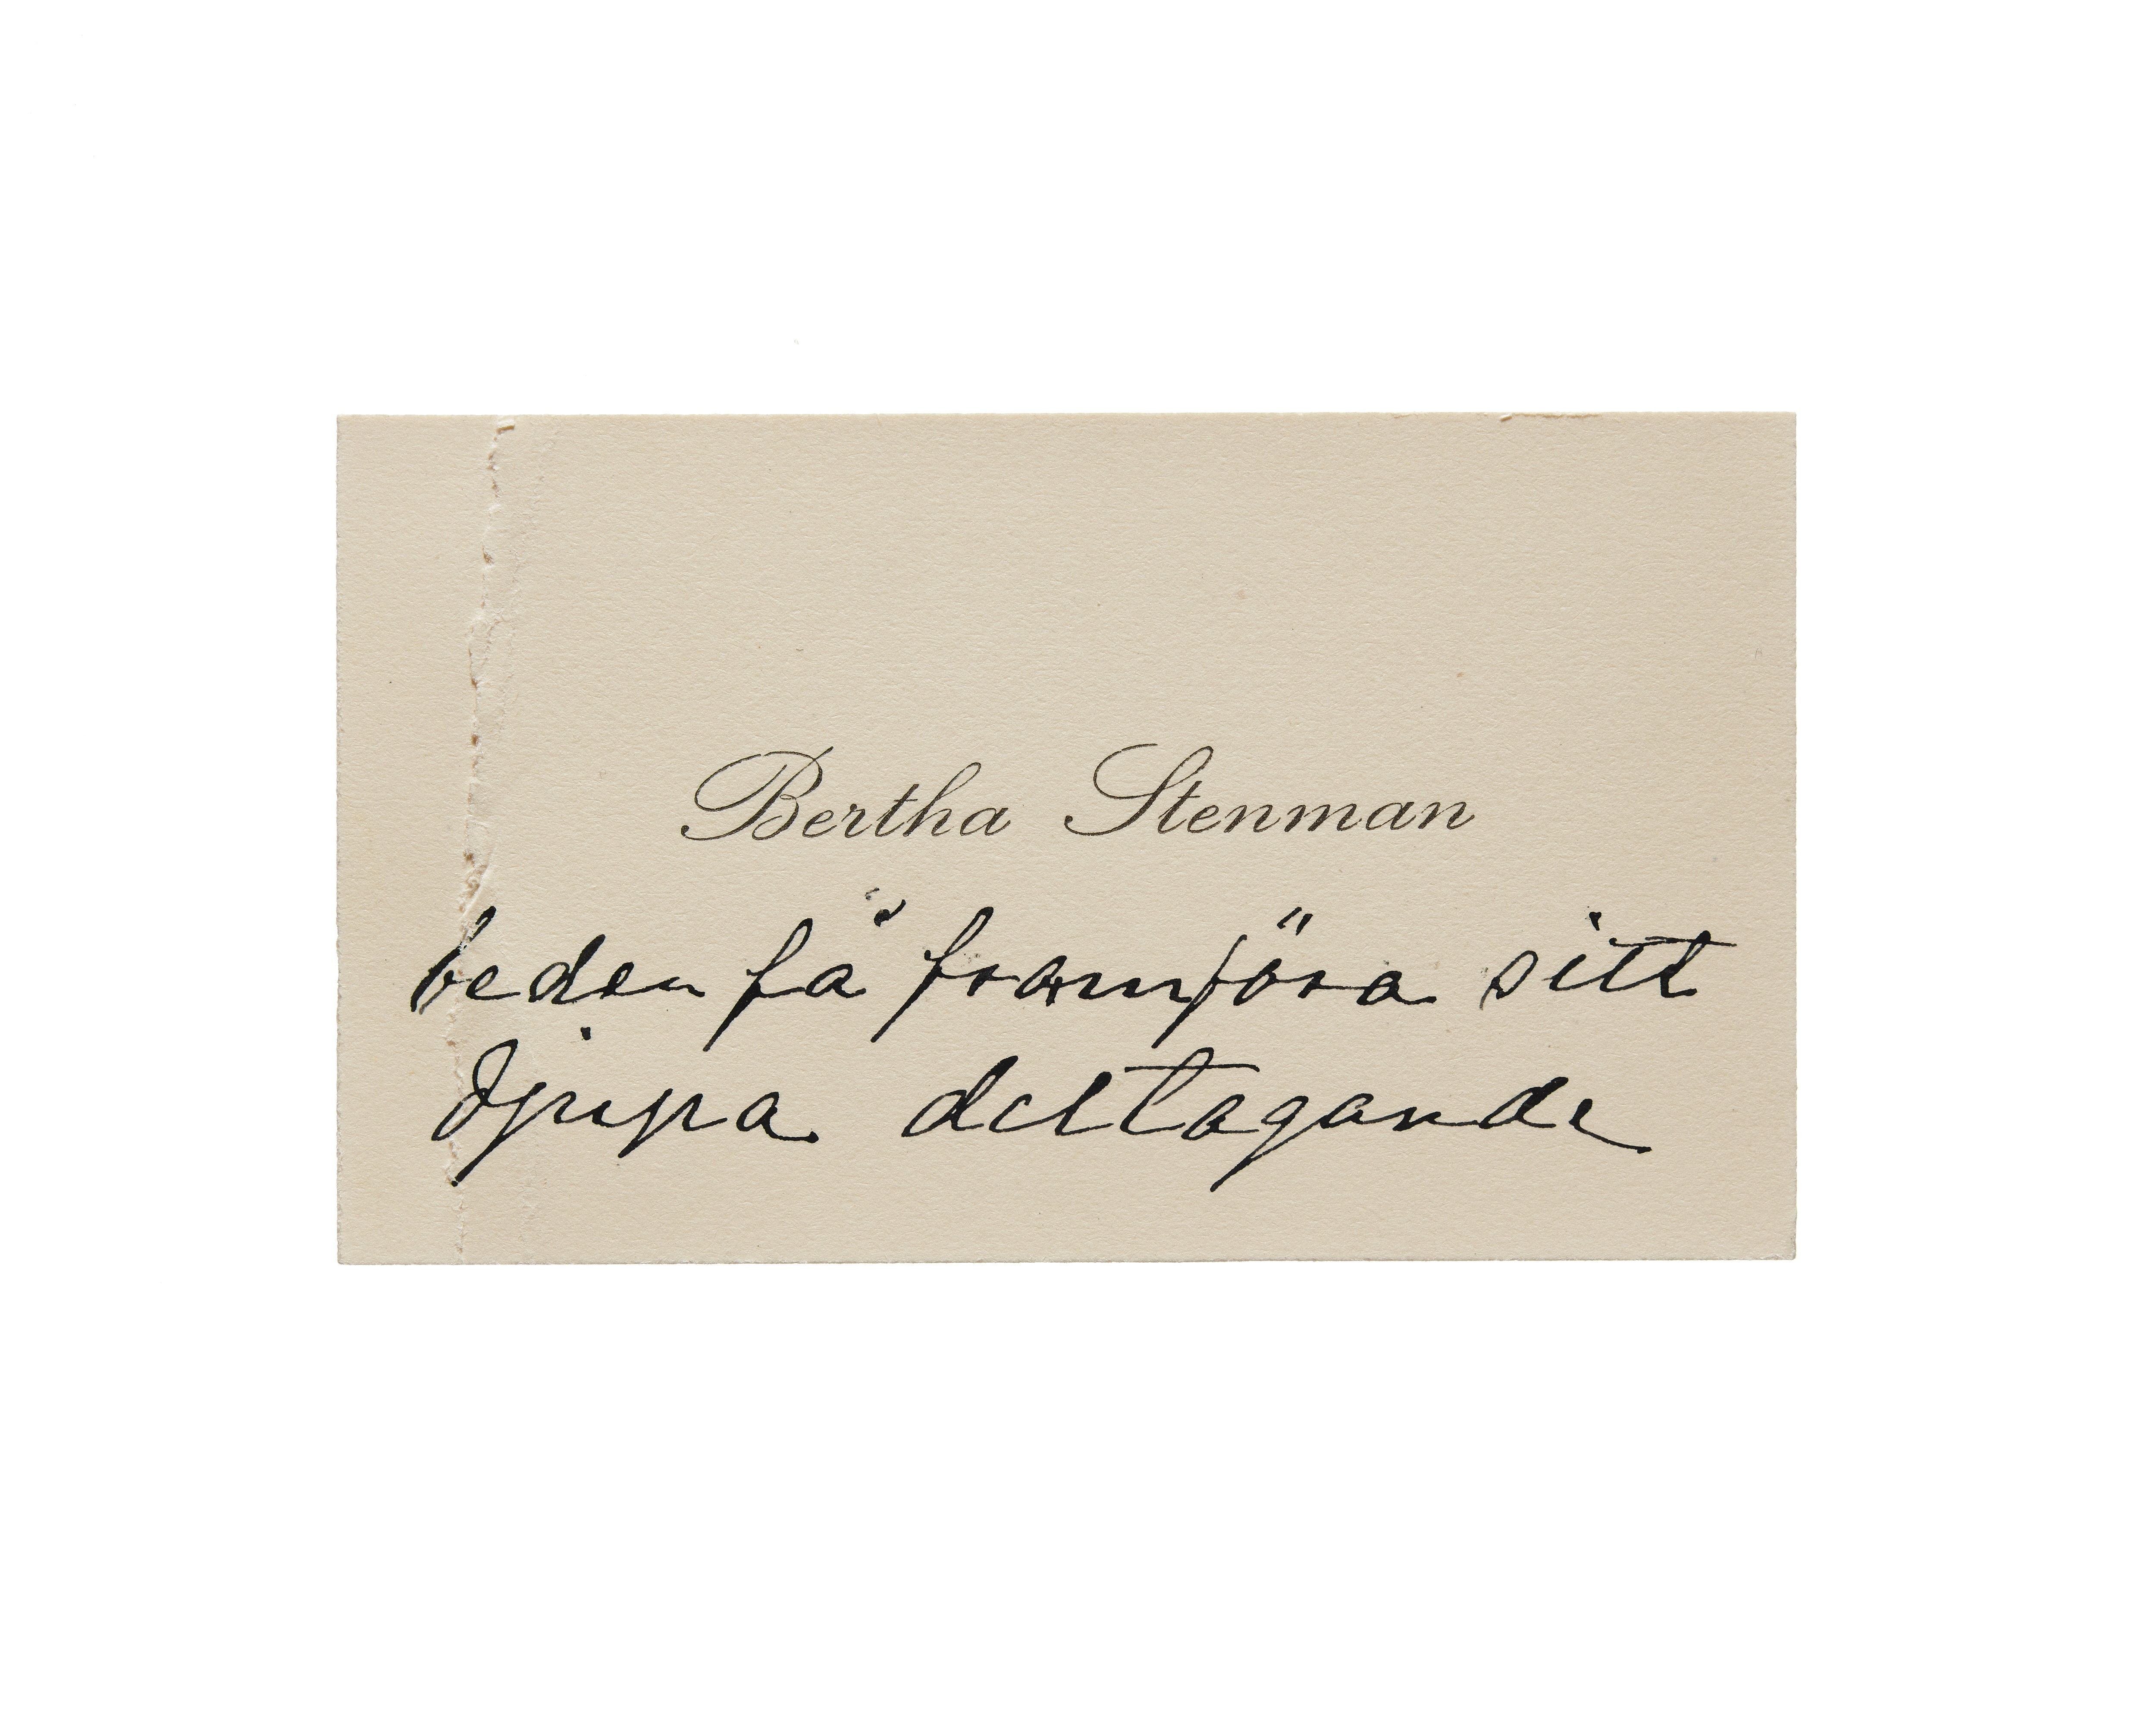 Bertha Stenman
beder få framföra sitt
djupa deltagande